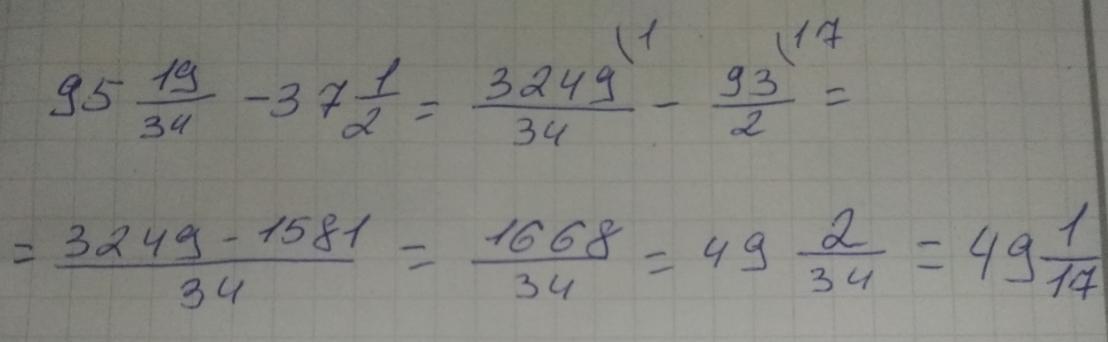 95 19/34 - 37 1/2 = 3249/34 \1 - 93/2 \17 =
= 3249 - 1581/34 = 1668/34 = 49 2/34 = 49 1/17